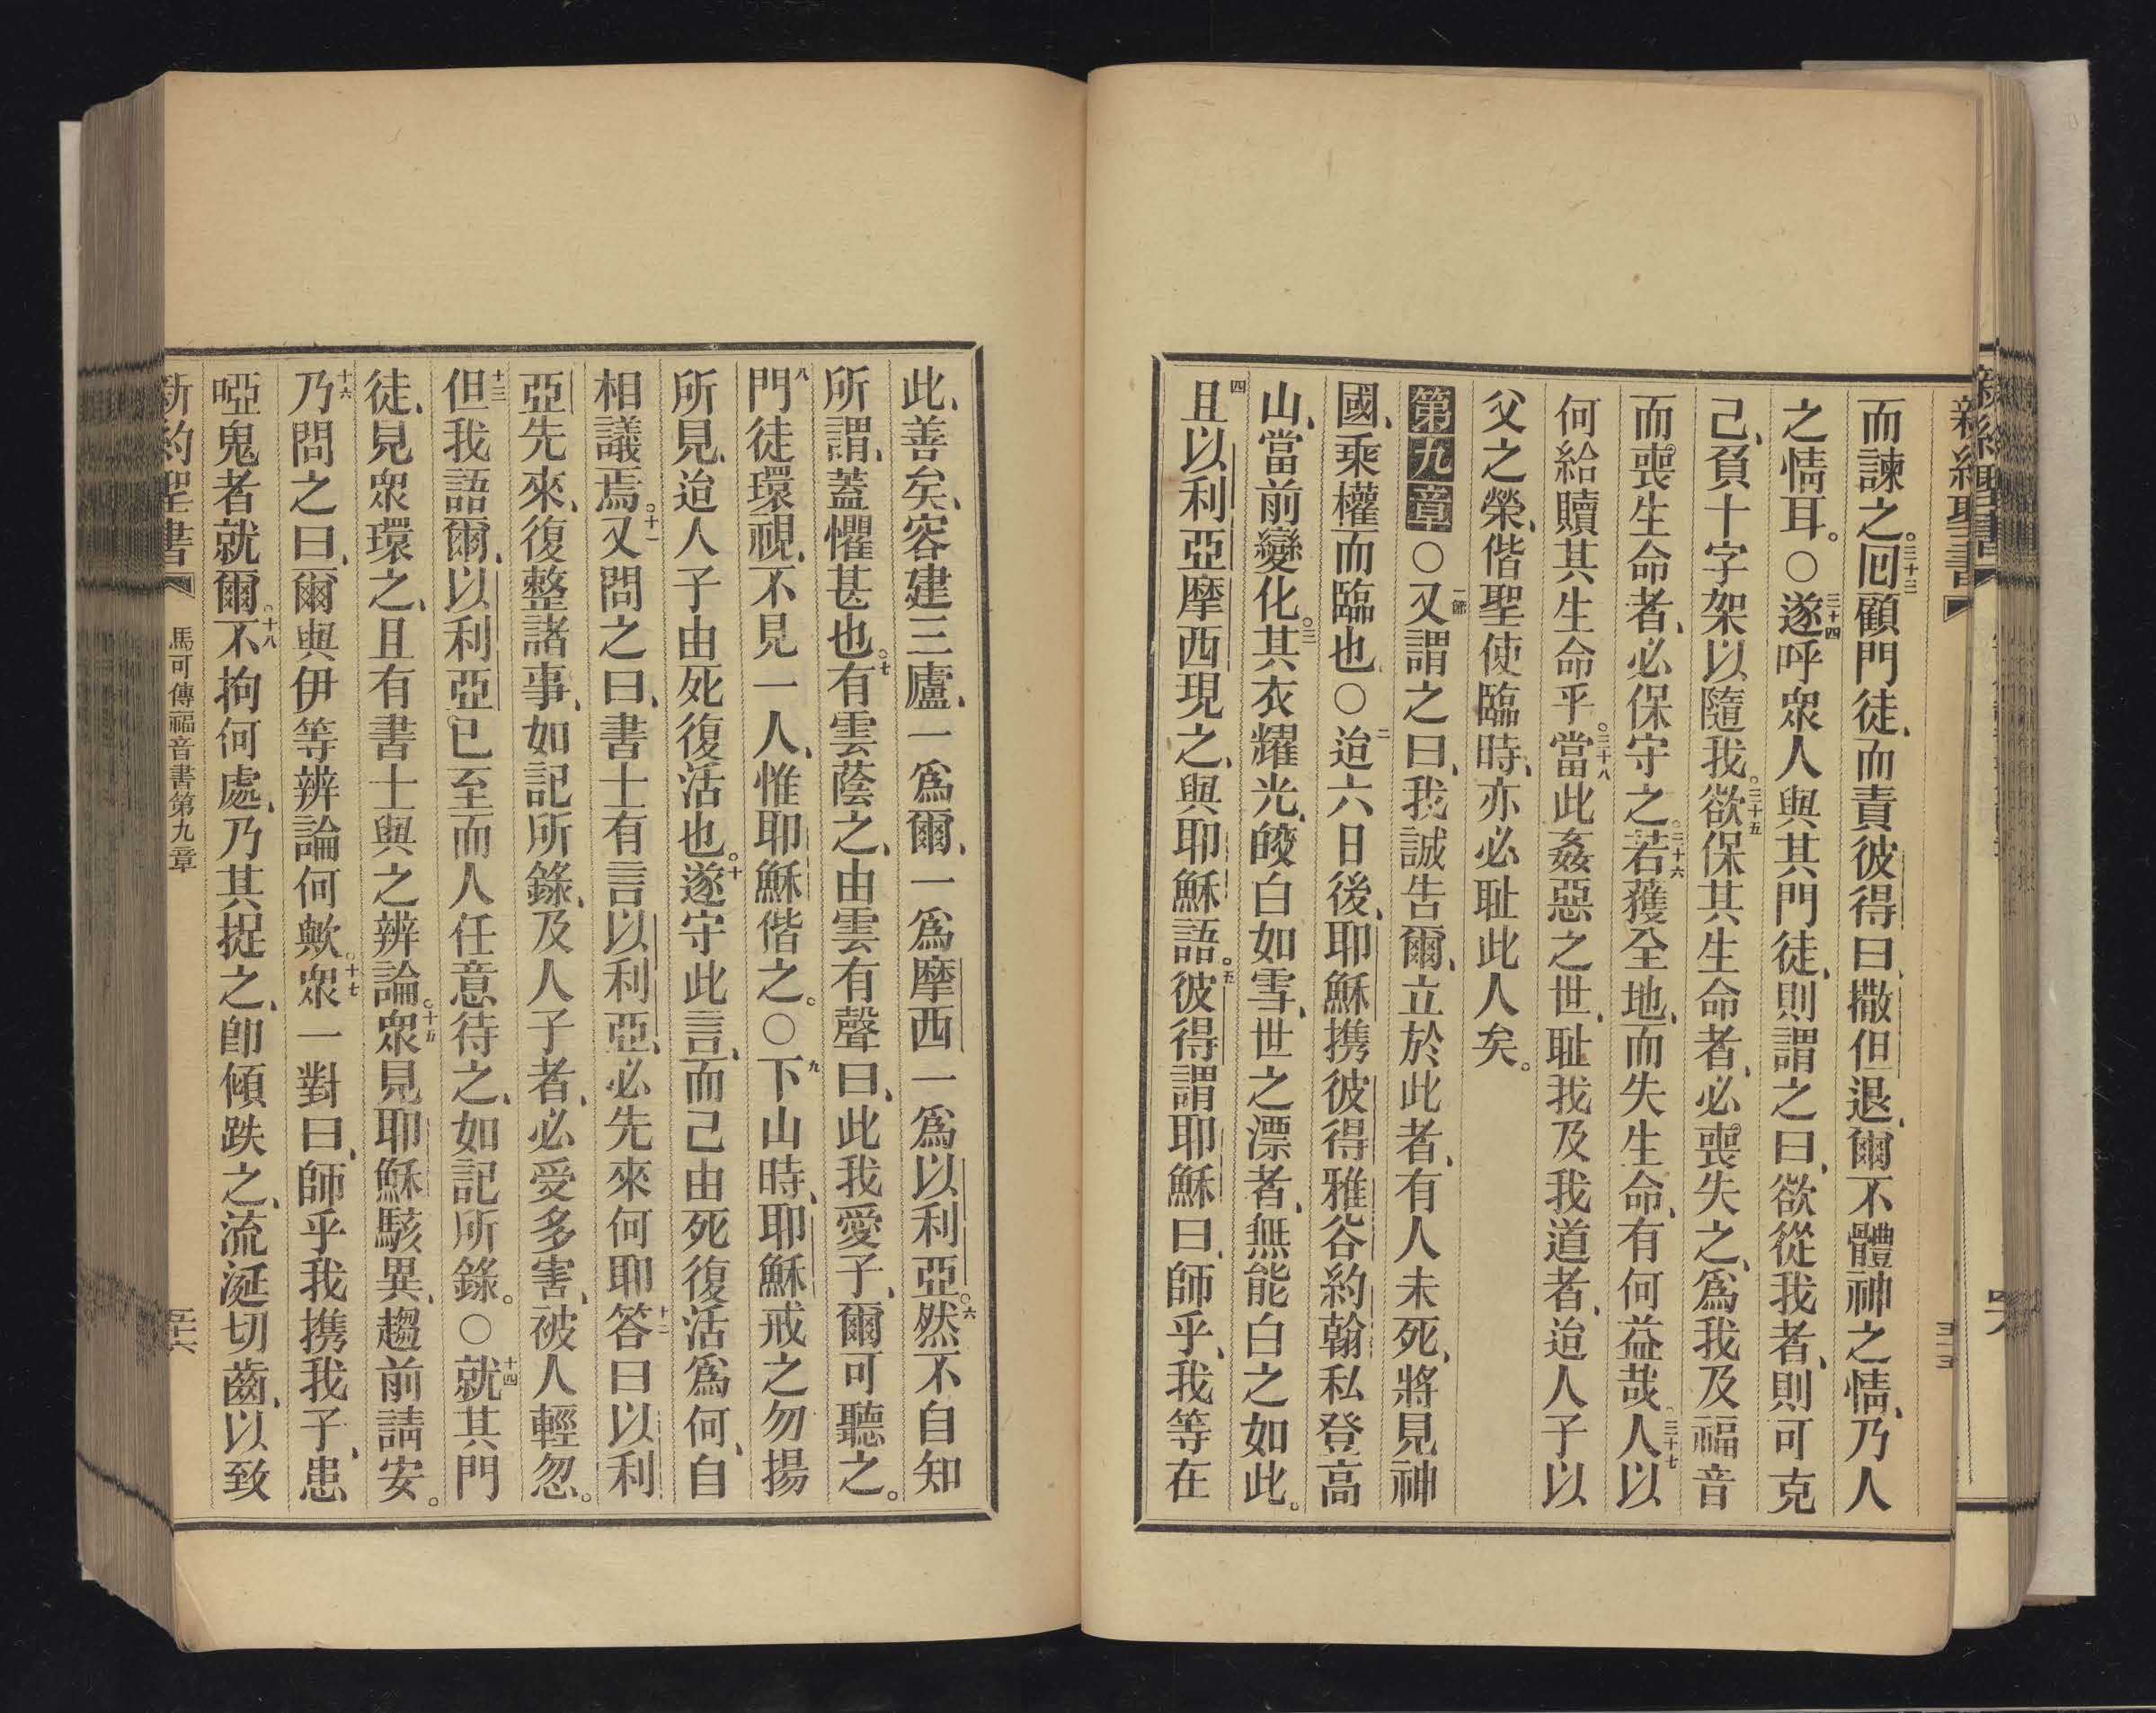 新約聖書
而諫之。三十三回顧門徒、而責彼得曰、撒但退、爾不體神之情、乃人
之情耳。○三十四遂呼眾人與其門徒、則謂之曰、欲從我者、則可克
己、負十字架以隨我。三十五欲保其生命者、必喪失之、爲我及福音
而喪生命者、必保守之。三十六若獲全地、而失生命、有何益哉。三十七人以
何給贖其生命乎。三十八當此姦惡之世、耻我及我道者、迨人子以
父之榮、偕聖使臨時、亦必耻此人矣。
第九章○一節又謂之曰、我誠告爾、立於此者、有人未死、將見神
國、乘權而臨也。○二迨六日後、耶穌携彼得雅谷約翰私登高
山、當前變化。三其衣耀光、皎白如雪、世之漂者、無能白之如此。
四且以利亞摩西現之、與耶穌語。五彼得謂耶穌曰、師乎、我等在
此、善矣、容建三廬、一爲爾、一爲摩西一爲以利亞。六然不自知
所謂、蓋懼甚也。七有雲蔭之、由雲有聲曰、此我愛子、爾可聽之。
八門徒環視、不見一人、惟耶穌偕之。○九下山時、耶穌戒之勿揚
所見、迨人子由死復活也。十遂守此言、而己由死復活爲何、自
相議焉。十一又問之曰、書士有言以利亞、必先來何耶十二答曰以利
亞先來、復整諸事、如記所錄、及人子者、必愛多害、被人輕忽。
十三但我語爾、以利亞已至而人任意待之、如記所錄。○十四就其門
徒、見眾環之、且有書士與之辨論。十五眾見耶穌駭異、趨前請安。
十六乃問之曰、爾與伊等辨論何歟。十七眾一對曰、師乎我携我子、患
啞鬼者就爾。十八不拘何處、乃其捉之、卽傾跌之、流涎切齒、以致
新約聖書 馬可傳福音書第九章 五十六